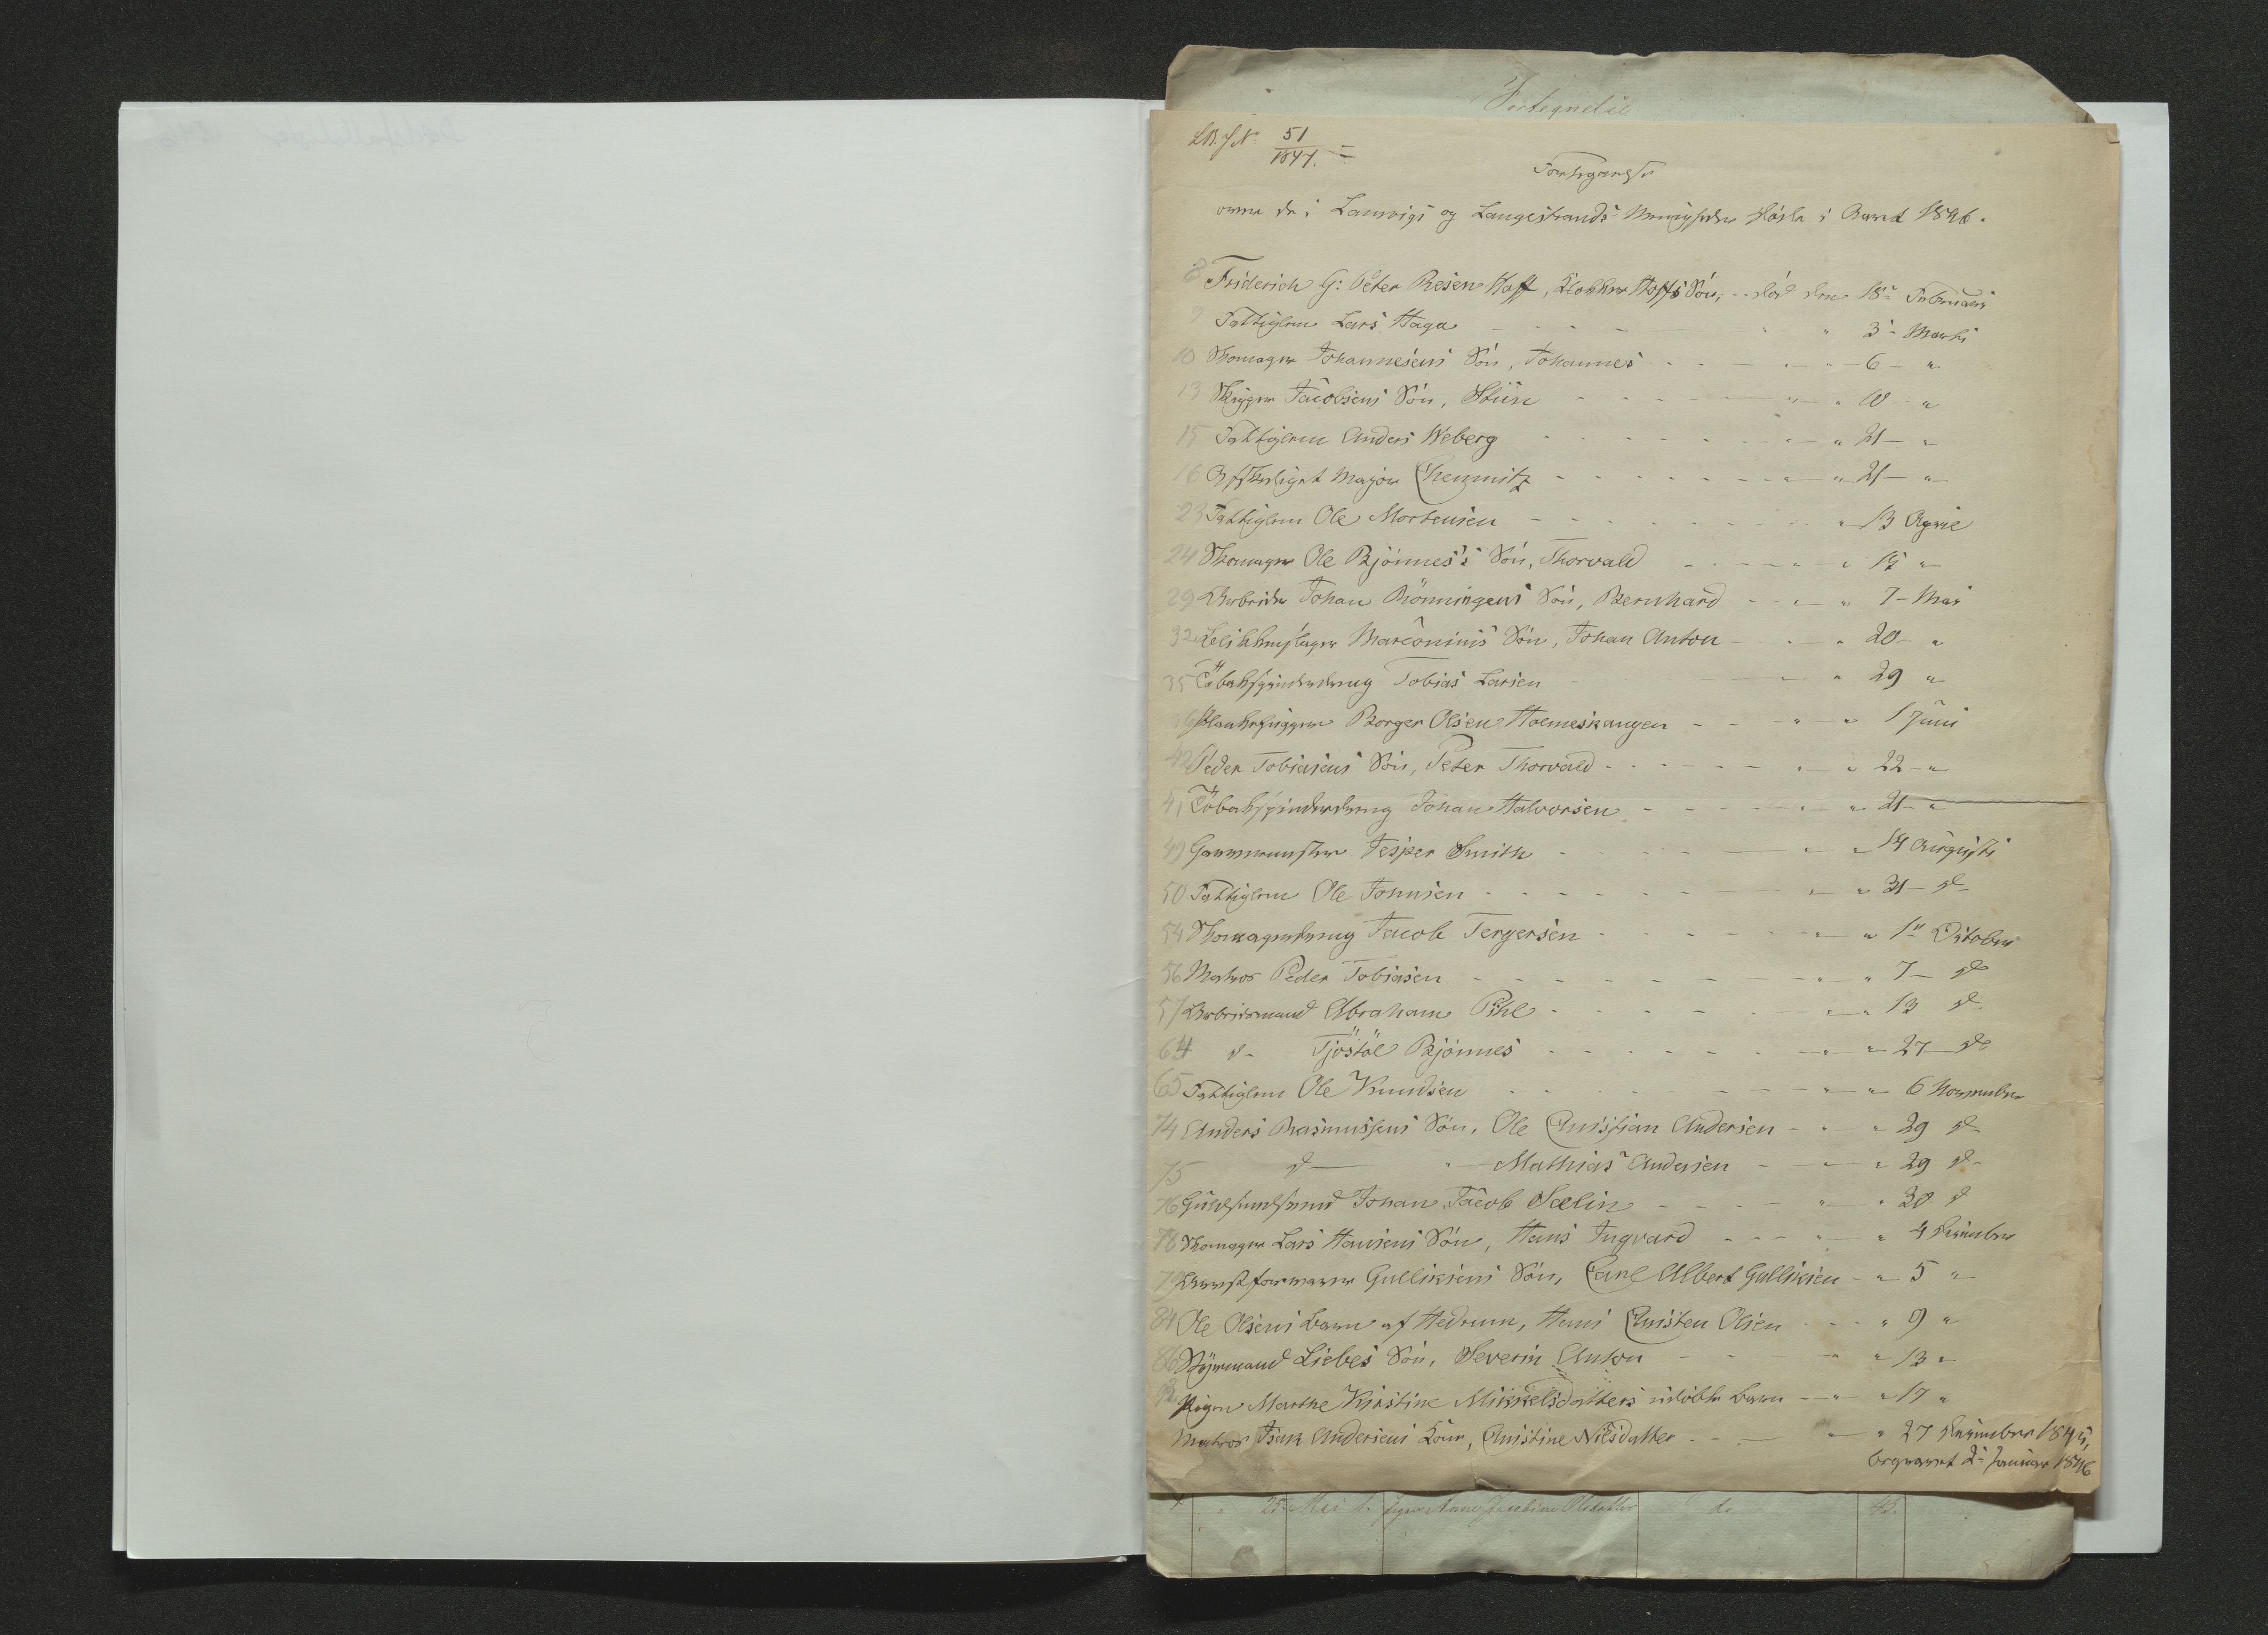 Fortegnelse
LB. J N: 51/1847.
Fortegnelse
over de i Laurvigs og Langestrands Menigheder døde i Aaret 1846.
8 Friderich G: Peter Resen Hoff, Klokker Hoffs Søn, - død den 18de Februari
9 Fattiglem Lars Haga - - - - " " 3 - Marti
10 Skomager Johannesens Søn, Johannes - - - - " - 6 - "
13 Skipper Jacobsens Søn, - - - - " " 10 - "
15 Fattiglem Anders Weberg - - - - " 21 - "
16 Afskediget Major Chemnitz - - - - " " 21 - "
23 Fattiglem Ole Mortensen - - - - " 13 April
24 Skomager Ole Bjönnes's Søn, Thorvald - - - - " 15 "
29 Arbeider Johan Rönningens Søn, Bernhard - - " " 7 - Mai
32 Marconinis Søn, Johan Anton - - " 20 - "
35 Tobakspinderdreng Tobias Larsen - - " 29 "
Borger Olsen Holmeskaugen - - " " 1 Juni
42 Peder Tobiasens Søn, Peter Thorvald - - - - " " 22 - "
41 Tobakspinderdreng Johan Halvorsen - - - - " " 21 - "
49 Garvermester Jesper Smith - - - - " " 14 Augusti
50 Fattiglem Ole Johnsen - - - - " " 31 - do
54 Skomagerdreng Jacob Tergersen - - - - " " 1 October
56 Matros Peder Tobiasen - - - - " " 7 - do
57 Arbeidsmand Abraham Pihl - - - - " " 13 do
64 do - Tjöstöl Bjönnes - - - - " " 27 - do
65 Fattiglem Ole Knudsen - - - - " " 6 November
74 Anders Rasmussens Søn, Ole Christian Andersen - " " 29 do
75 do - " - Mathias Andersen - " " 29 do
76 Guldsmedsvend Johan Jacob Sælin - - - - " " 30 do
78 Skomager Lars Hansens Søn, Hans Ingvard - - - " " 4 December
79 Gulliksens Søn, Carl Albert Gulliksen - " 5 "
84 Ole Olsens Barn af Hedrum, Hans Christen Olsen - - - " 9 "
86 Styrmand Liebes Søn, Severin Anton - - " " 13 "
92 Pigen Marthe Kirstine Mikkelsdatters uægte Barn - " " 17 "
Matros Isak Andersens Kone, Christine Nilsdatter - - - " " 27 December 1845,
begravet 2 Januar 1846
25 Mai d. Anne Jacobine Olsdatter do